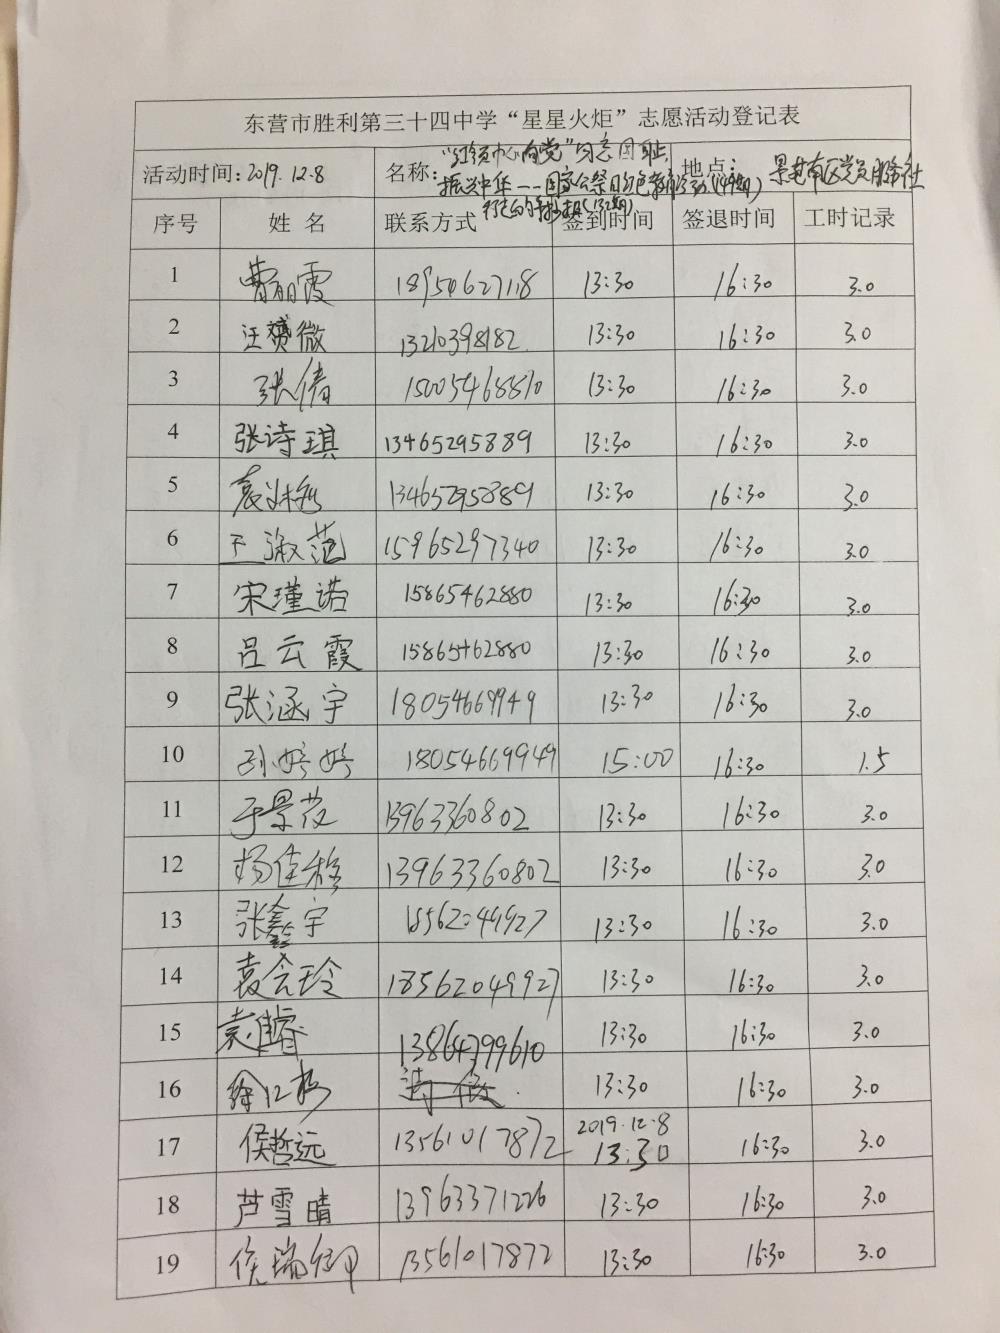 东营市胜利第三十四中学“星星火炬”志愿活动登记表
活动时间:2019.12.8 名称:“红领巾心向党”勿忘国耻, 地点:
振兴中华——国家公祭日红色教育活动(149期)
(132期)
序号 姓名 联系方式 签到时间 签退时间 工时记录
1 曹丽霞 18954627118 13:30 16:30 3.0
2 汪赟微 13210398182 13:30 16:30 3.0
3 张倩 15005468810 13:30 16:30 3.0
4 张诗琪 13465295889 13:30 16:30 3.0
5 13465295889 13:30 16:30 3.0
6 王淑范 15965297340 13:30 16:30 3.0
7 宋瑾诺 15865462880 13:30 16:30 3.0
8 吕云霞 15865462880 13:30 16:30 3.0
9 张涵宇 18054669949 13:30 16:30 3.0
10 孙婷婷 18054669949 15:00 16:30 1.5
11 于景茂 13963360802 13:30 16:30 3.0
12 杨佳 13963360802 13:30 16:30 3.0
13 张鑫宇 18562049927 13:30 16:30 3.0
14 袁会玲 18562049927 13:30 16:30 3.0
15 13864799610 13:30 16:30 3.0
16 13:30 16:30 3.0
17 侯哲远 13561017872 2019.12.8 13:30 16:30 3.0
18 芦雪晴 13963371226 13:30 16:30 3.0
19 侯瑞卿 13561017872 13:30 16:30 3.0